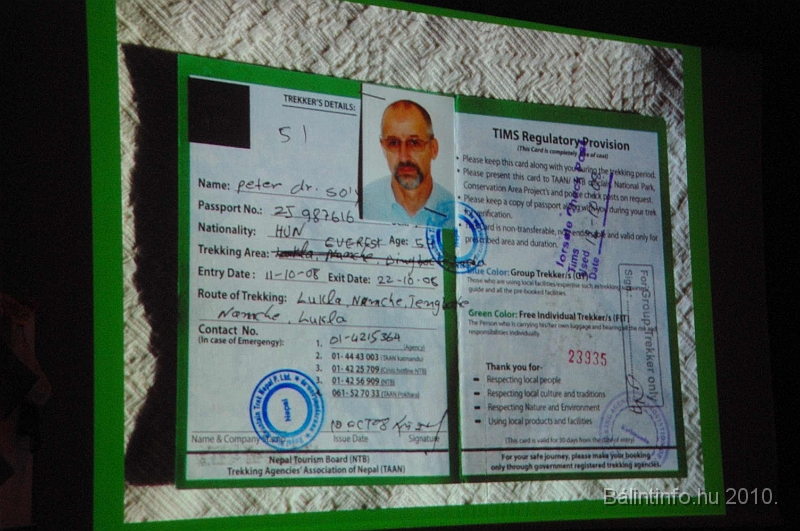 TREKKER'S DETAILS:
51
Name: peter dr.
Passport No.: 2J 987616
Nationality: HUN
EVEREST Age:
Trekking Area:
Entry Date: 11-10-08 Exit Date: 22-10-08
Route of Trekking: Lukla, Namche, Tengboche
Namche, Lukla
Contact No.
(In case of Emergengy):
1. 01-4215364 (Agency)
2. 01- 44 43 003 (TAAN katmandu)
3. 01- 42 25 709 (Crisis hotline NTB)
3. 01- 42 56 909 (NTB)
061- 52 70 33 (TAAN Pokhara)
Nepal
10 OCT 08
Name & Company Issue Date Signature
Nepal Tourism Board (NTB)
Trekking Agencies' Association of Nepal (TAAN)
TIMS Regulatory Provision
(This Card is completely of cost)
• Please keep this card along with you during the trekking period.
• Please present this card to TAAN/ National Park,
Conservation Area Project's and police check posts on request.
• Keep a copy of passport along with you during your trek
verification.
card is non-transferable, non and valid only for
prescribed area and duration.
Check Post
Tims
Used
Date
Blue Color: Group Trekker/s (GT)
Those who are using local facilities/expertise such as trekking
guide and all the pre-booked facilities.
Green Color: Free Individual Trekker/s (FIT)
The Person who is carrying his/her own luggage and bearing all the risk and
responsibilities individually.
For Group Trekker only
Sign:
23935
Thank you for-
Respecting local people
Respecting local culture and traditions
Respecting Nature and Environment
Using local products and facilities
(This card is valid for 30 days from the date of entry)
For your safe journey, please make your booking
only through government registered trekking agencies.
Balintinfo.hu 2010.